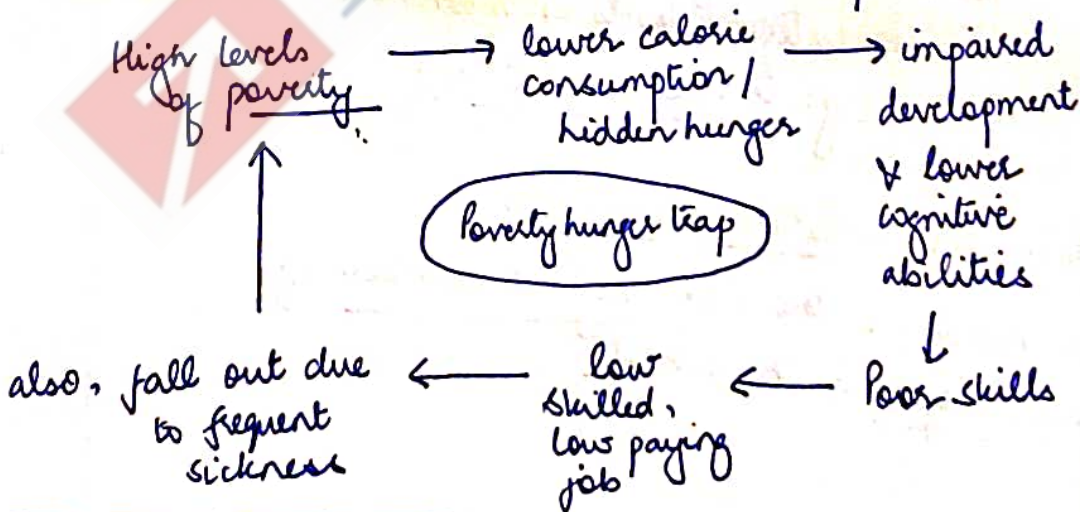 High levels
of poverty
lower calorie
consumption/
hidden hunger
impaired
development
& lower
cognitive
abilities
Poverty hunger trap
Poor skills
low
skilled,
low paying
job
also, fall out due
to frequent
sickness